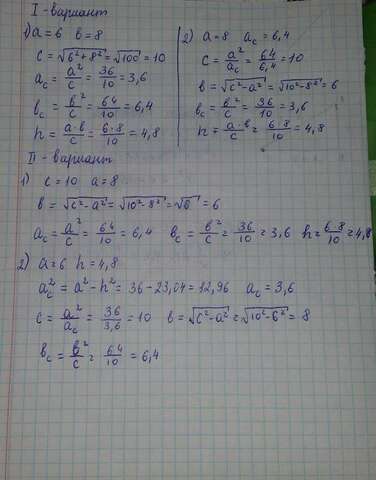 I-вариант
1) a=6 в=8
c = √(6²+8²) = √100 = 10
a_c = a²/c = 36/10 = 3,6
в_c = в²/c = 64/10 = 6,4
h = a·в/c = 6·8/10 = 4,8
2) a=8 a_c = 6,4
c = a²/a_c = 64/6,4 = 10
в = √(c²-a²) = √(10²-8²) = 6
в_c = в²/c = 36/10 = 3,6
h = a·в/c = 6·8/10 = 4,8
II-вариант
1) c=10 a=8
в = √(c²-a²) = √(10²-8²) = = 6
a_c = a²/c = 64/10 = 6,4 в_c = в²/c = 36/10 = 3,6 h = 6·8/10 = 4,8
2) a=6 h=4,8
a_c² = a²-h² = 36-23,04 = 12,96 a_c = 3,6
c = a²/a_c = 36/3,6 = 10 в = √(c²-a²) = √(10²-6²) = 8
в_c = в²/c = 64/10 = 6,4